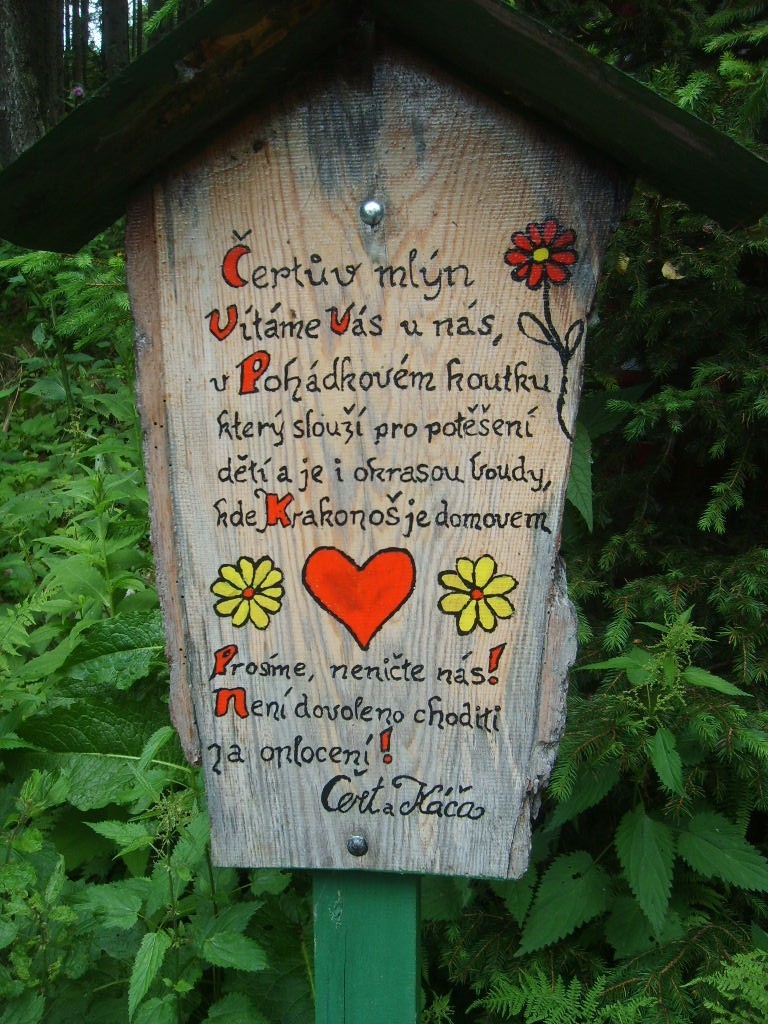 Čertův mlýn
Vítáme Vás u nás,
v Pohádkovém koutku
který slouží pro potěšení
dětí a je i okrasou boudy,
kde Krakonoš je domovem
Prosíme, neničte nás!
Není dovoleno choditi
za oplocení!
Čert a Káča